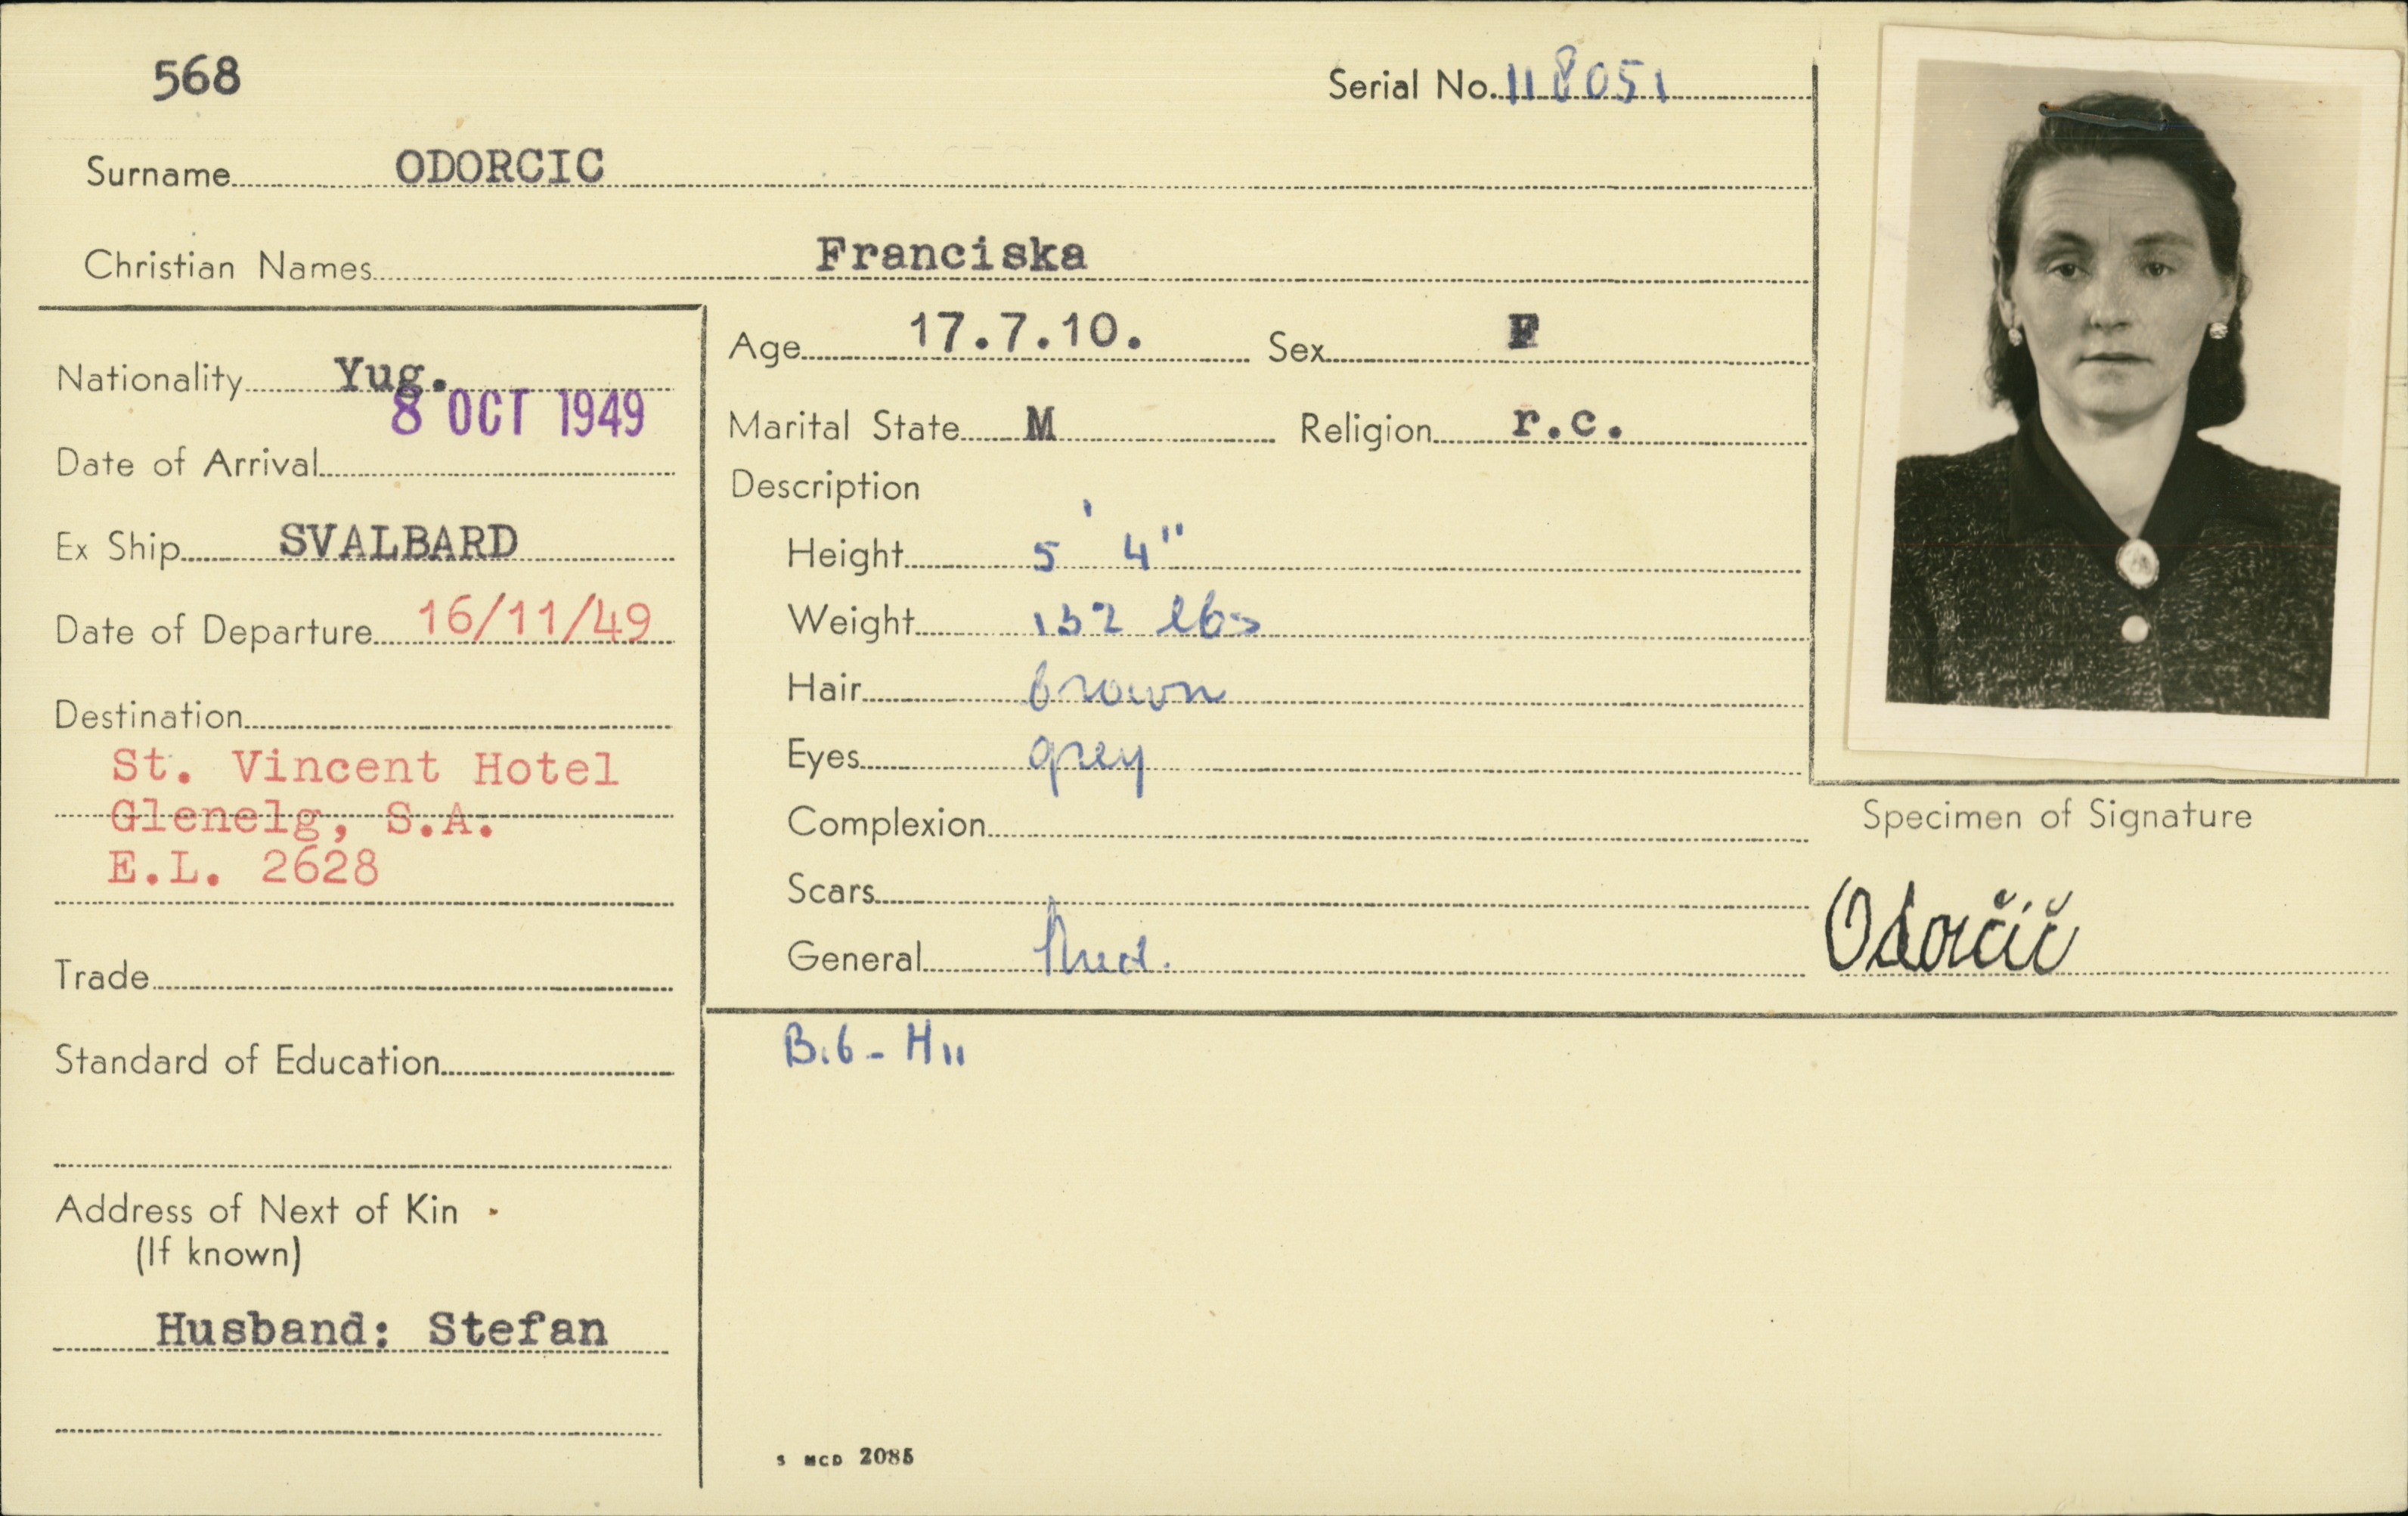 568
Serial No. 118051
Surname ODORCIC
Christian Names Franciska
Nationality Yug.
8 OCT 1949
Date of Arrival
Ex Ship SVALBARD
Date of Departure 16/11/49
Destination
St. Vincent Hotel
Glenelg, S.A.
E.L. 2628
Trade
Standard of Education
Address of Next of Kin
(If known)
Husband: Stefan
Age 17.7.10. Sex F
Marital State M Religion r.c.
Description
Height 5' 4"
Weight 132 lbs
Hair brown
Eyes grey
Complexion
Scars
General
B.6 - H11
S MCD 2085
Specimen of Signature
Odorčič